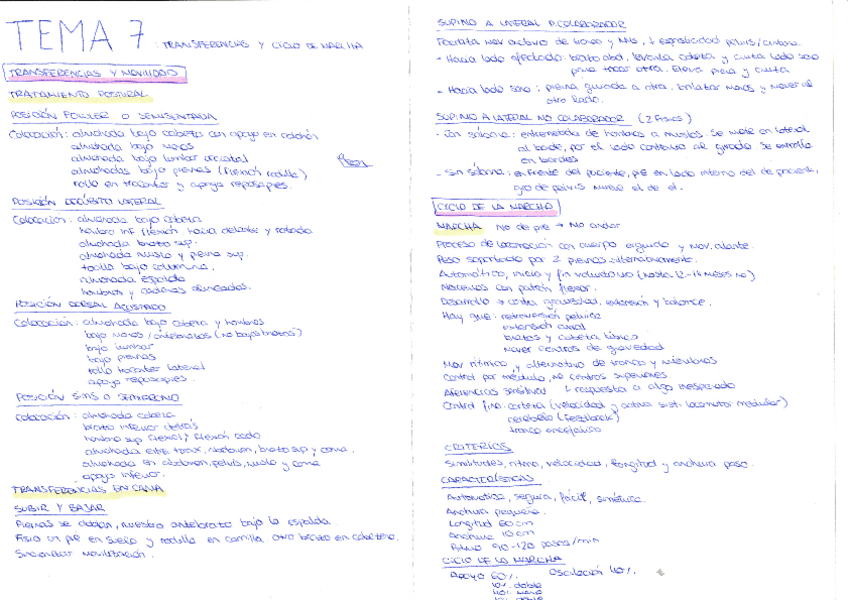 TEMA 7: TRANSFERENCIAS Y CICLO DE MARCHA
TRANSFERENCIAS Y MOVILIDAD
TRATAMIENTO POSTURAL
POSICIÓN FOWLER O SEMISENTADA
Colocación: almohada bajo cabeza con apoyo en colchón
almohada bajo manos
almohada bajo lumbar
almohadas bajo piernas (flexión rodilla)
rollo en trocanter y apoya reposapies.
POSICIÓN DECÚBITO LATERAL
Colocación: almohada bajo cabeza
hombro inf flexión hacia delante y rotado
almohada brazo sup.
almohada muslo y pierna sup.
toalla bajo columna.
almohada espalda
hombros y caderas alineados.
POSICIÓN DORSAL AJUSTADO
Colocación: almohada bajo cabeza y hombros
bajo manos / antebrazos (no bajo brazos)
bajo lumbar
bajo piernas
rollo trocanter lateral
apoya reposapies.
POSICIÓN SIMS O SEMIPRONO
Colocación: almohada cabeza
brazo inferior detrás
hombro sup flexión y flexión codo
almohada entre torax, abdomen, brazo sup y cama.
almohada en abdomen, pelvis, muslo y cama
apoyo inferior.
TRANSFERENCIAS EN CAMA
SUBIR Y BAJAR
Piernas se doblan, nuestro antebrazo bajo la espalda.
Fisio un pie en suelo y rodilla en camilla, otro brazo en cabecero.
Sincronizar movilización.
SUPINO A LATERAL P. COLABORADOR
Facilita mov activo de tronco y MMS, ↓ espasticidad pelvis/cintura.
- Hacia lado afectado: brazo abd, levanta cabeza y cruza lado sano para tocar otra. Eleva pierna y cruza.
- Hacia lado sano: pierna girada a otra. Enlazar manos y mover al otro lado.
SUPINO A LATERAL NO COLABORADOR (2 Fisios)
- Con sábana: entremetida de hombros a muslos. Se mueve en lateral
al borde, por el lado contrario al girado se enrolla
en bordes
- Sin sábana: en frente del paciente, pie en lado interno del de paciente,
giro de pelvis mueve el de él.
CICLO DE LA MARCHA
MARCHA No de pie → No andar
Proceso de locomoción con cuerpo erguido y mov. alante.
Peso soportado por 2 piernas alternativamente.
Automático, inicio y fin voluntario (hasta 12-14 meses no)
Nacemos con patrón flexor.
Desarrollo → contra gravedad, extensión y balance.
Hay que: retroversión pélvica
extensión axial
brazos y cabeza libres
mover centros de gravedad
Mov rítmico y alternativo de tronco y miembros
Control por médula, no centros superiores
Aferencias sensitivas ↳ respuesta a algo inesperado
Control fino: corteza (velocidad y activa sist. locomotor medular)
cerebelo (feedback)
tronco encefálico
CRITERIOS
Similitudes, ritmo, velocidad, longitud y anchura paso.
CARACTERÍSTICAS
Automática, segura, fácil, simétrica.
Anchura pequeña.
Longitud 60 cm
Anchura 10 cm
Ritmo 90-120 pasos/min
CICLO DE LA MARCHA
Apoyo 60%. Oscilación 40%.
10% doble